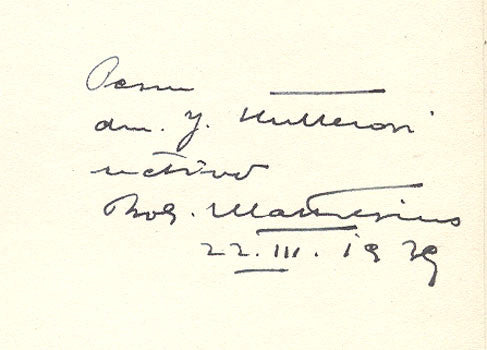 Panu
dru. J. Hullerovi
uctivě
Boh. Mathesius
22. III. 1939